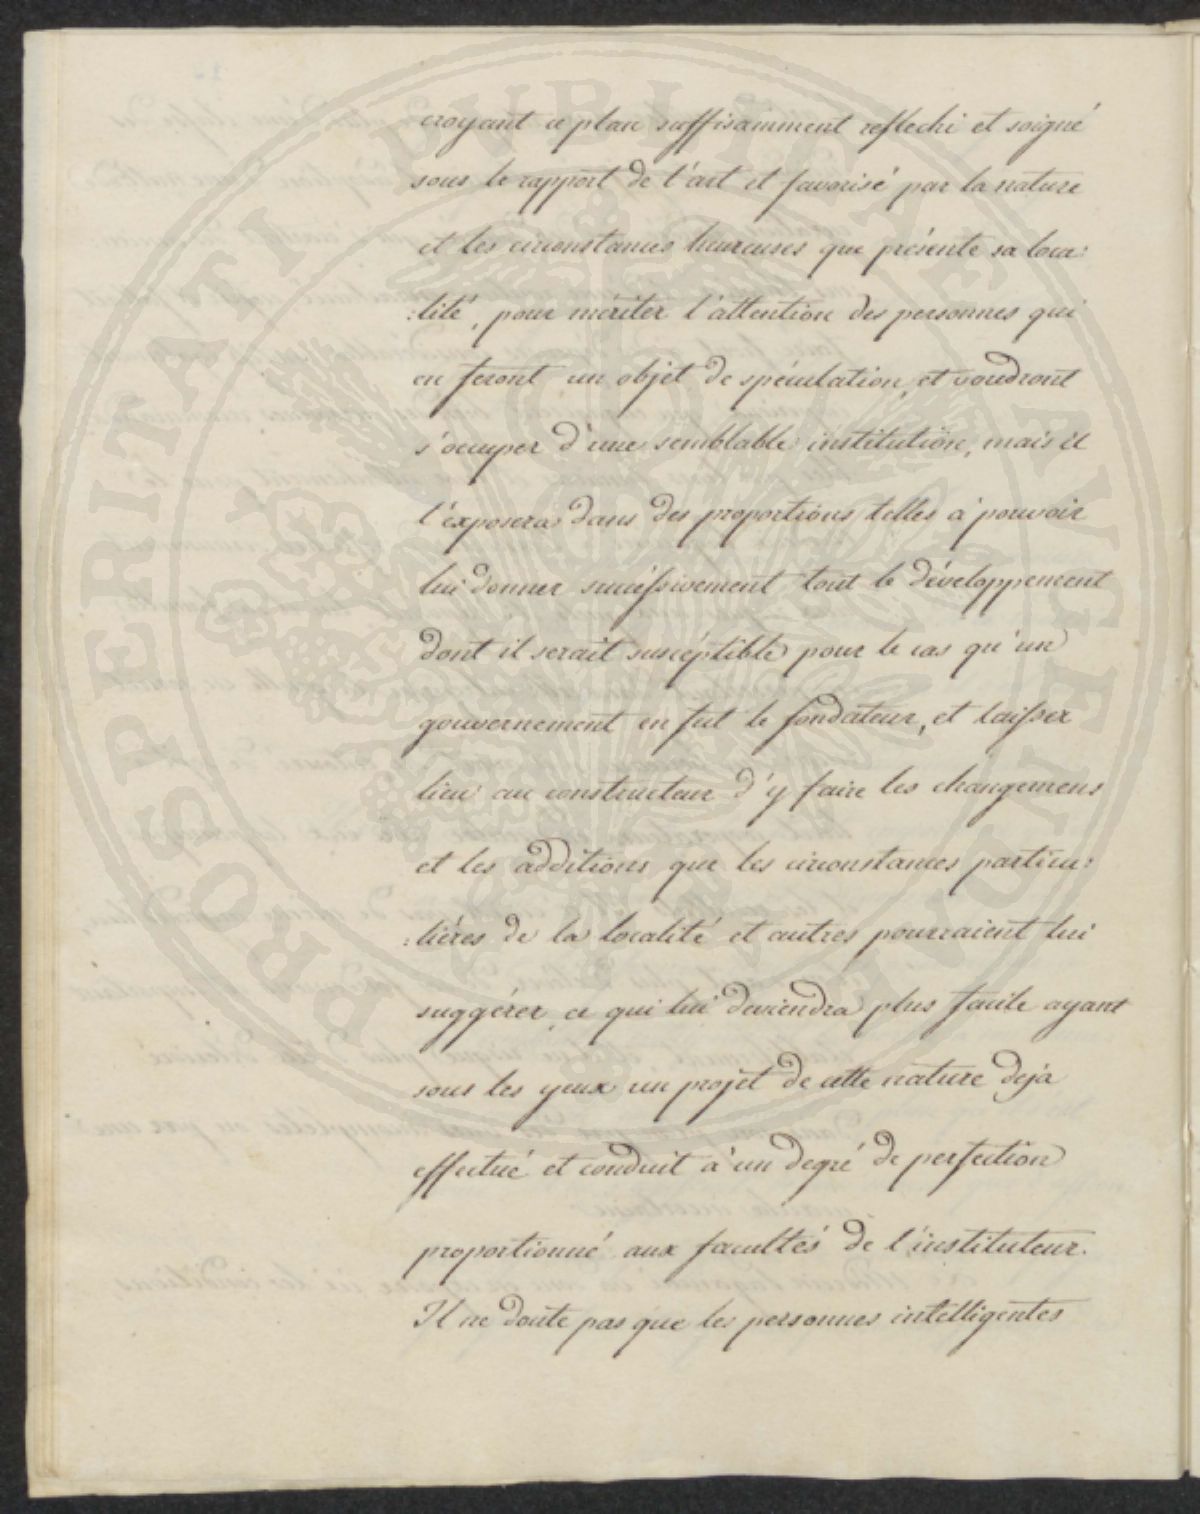 croyant ce plan suffisamment reflechi et soigné
sous le rapport de l'art et favorisé par la nature
et les circonstances heureuses que présente sa loca:
:lité, pour mériter l'attention des personnes qui
en feront un objet de spéculation, et voudront
s'occuper d'une semblable institution, mais il
l'exposera dans des proportions telles à pouvoir
lui donner successivement tout le développement
dont il serait susceptible pour le cas qu'un
gouvernement en fut le fondateur, et laisser
lieu au constructeur d'y faire les changemens
et les additions que les circonstances particu:
:lières de la localité et autres pourraient lui
suggérer, ce qui lui deviendra plus facile ayant
sous les yeux un projet de cette nature deja
effectué et conduit à un degré de perfection
proportionné aux facultés de l'instituteur.
Il ne doute pas que les personnes intelligentes
PROSPERITATI PUBLICAE AUGENDAE